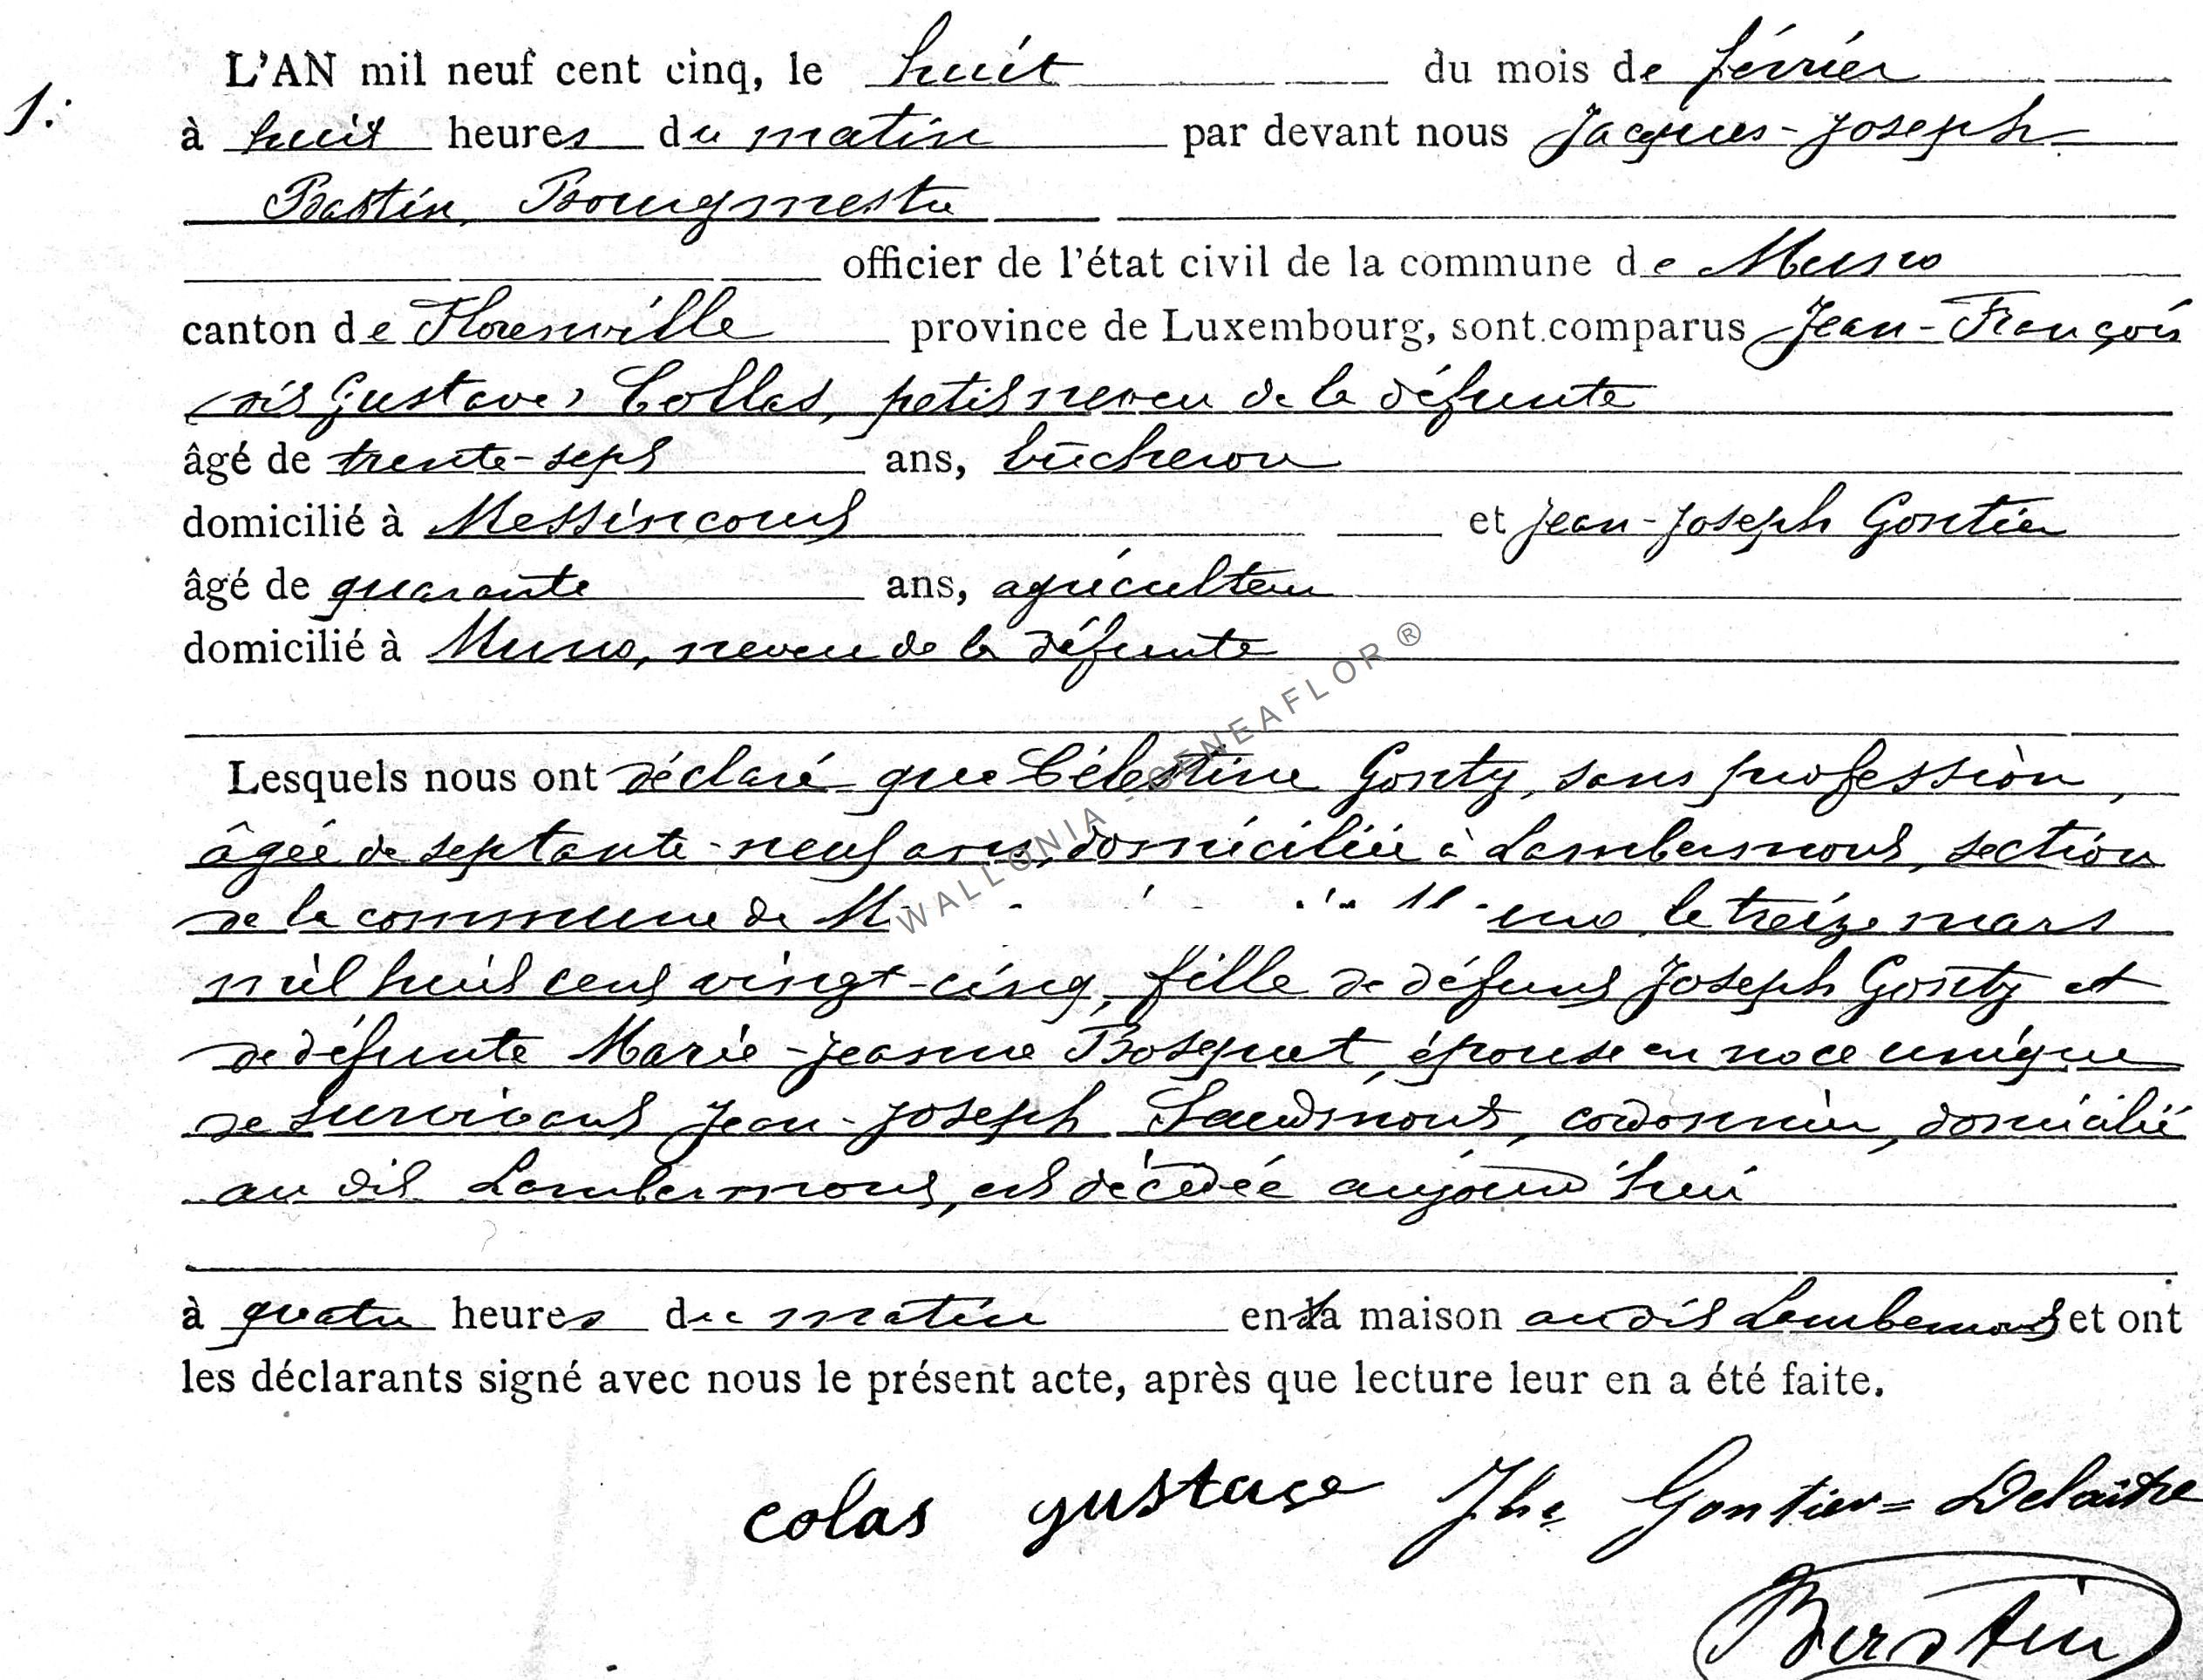 1.
L'AN mil neuf cent cinq, le huit du mois de février
à huit heures du matin par devant nous Jacques-Joseph
Bastin, Bourgmestre
officier de l'état civil de la commune de Muno
canton de Florenville province de Luxembourg, sont comparus Jean-François
(dit Gustave) Collas, petit neveu de la défunte
âgé de trente-sept ans, bûcheron
domicilié à Messincourt et Jean-Joseph Gontier
âgé de quarante ans, agriculteur
domicilié à Muno, neveu de la défunte
Lesquels nous ont déclaré que Célestine Gonty, sans profession,
âgée de septante-neuf ans, domiciliée à Lambermont, section
de la commune de le treize mars
mil huit cent vingt-cinq, fille de défunt Joseph Gonty et
de défunte Marie-Jeanne Bosquet, épouse en noce unique
de survivant Jean-Joseph cordonnier, domicilié
au dit Lambermont, est décédée aujourd'hui
à quatre heures du matin en sa maison au dit Lambermont et ont
les déclarants signé avec nous le présent acte, après que lecture leur en a été faite.
colas gustave Jh. Gontier=Delaitre
Bastin
WALLONIA - GENEAFLOR ®